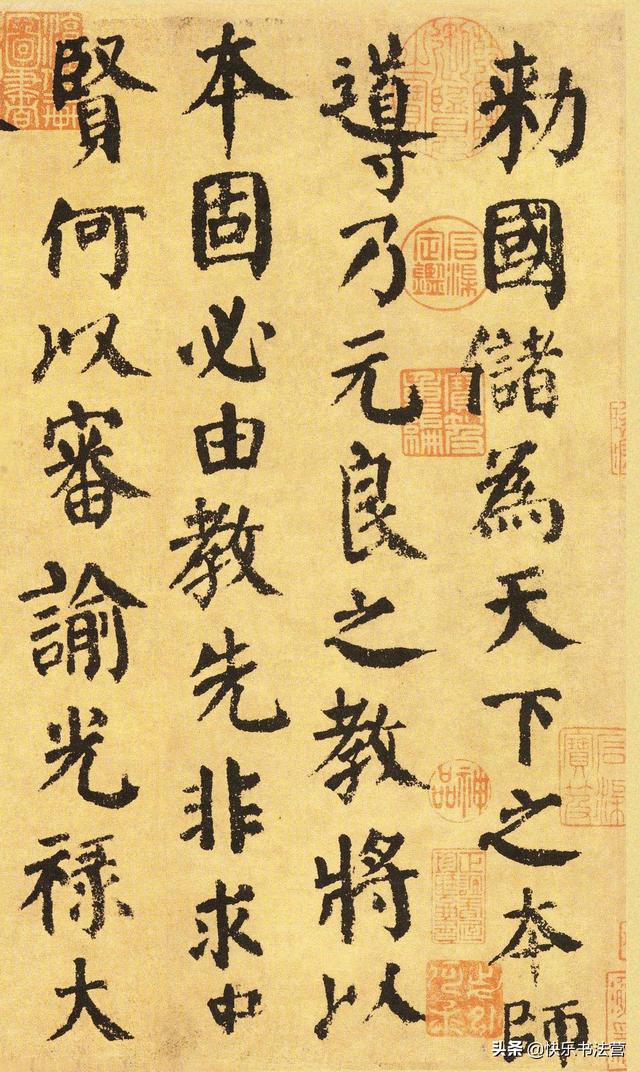 勅國儲為天下之本師
導乃元良之教將以
本固必由教先非求中
賢何以審諭光禄大
神品
头条 @快乐书法营